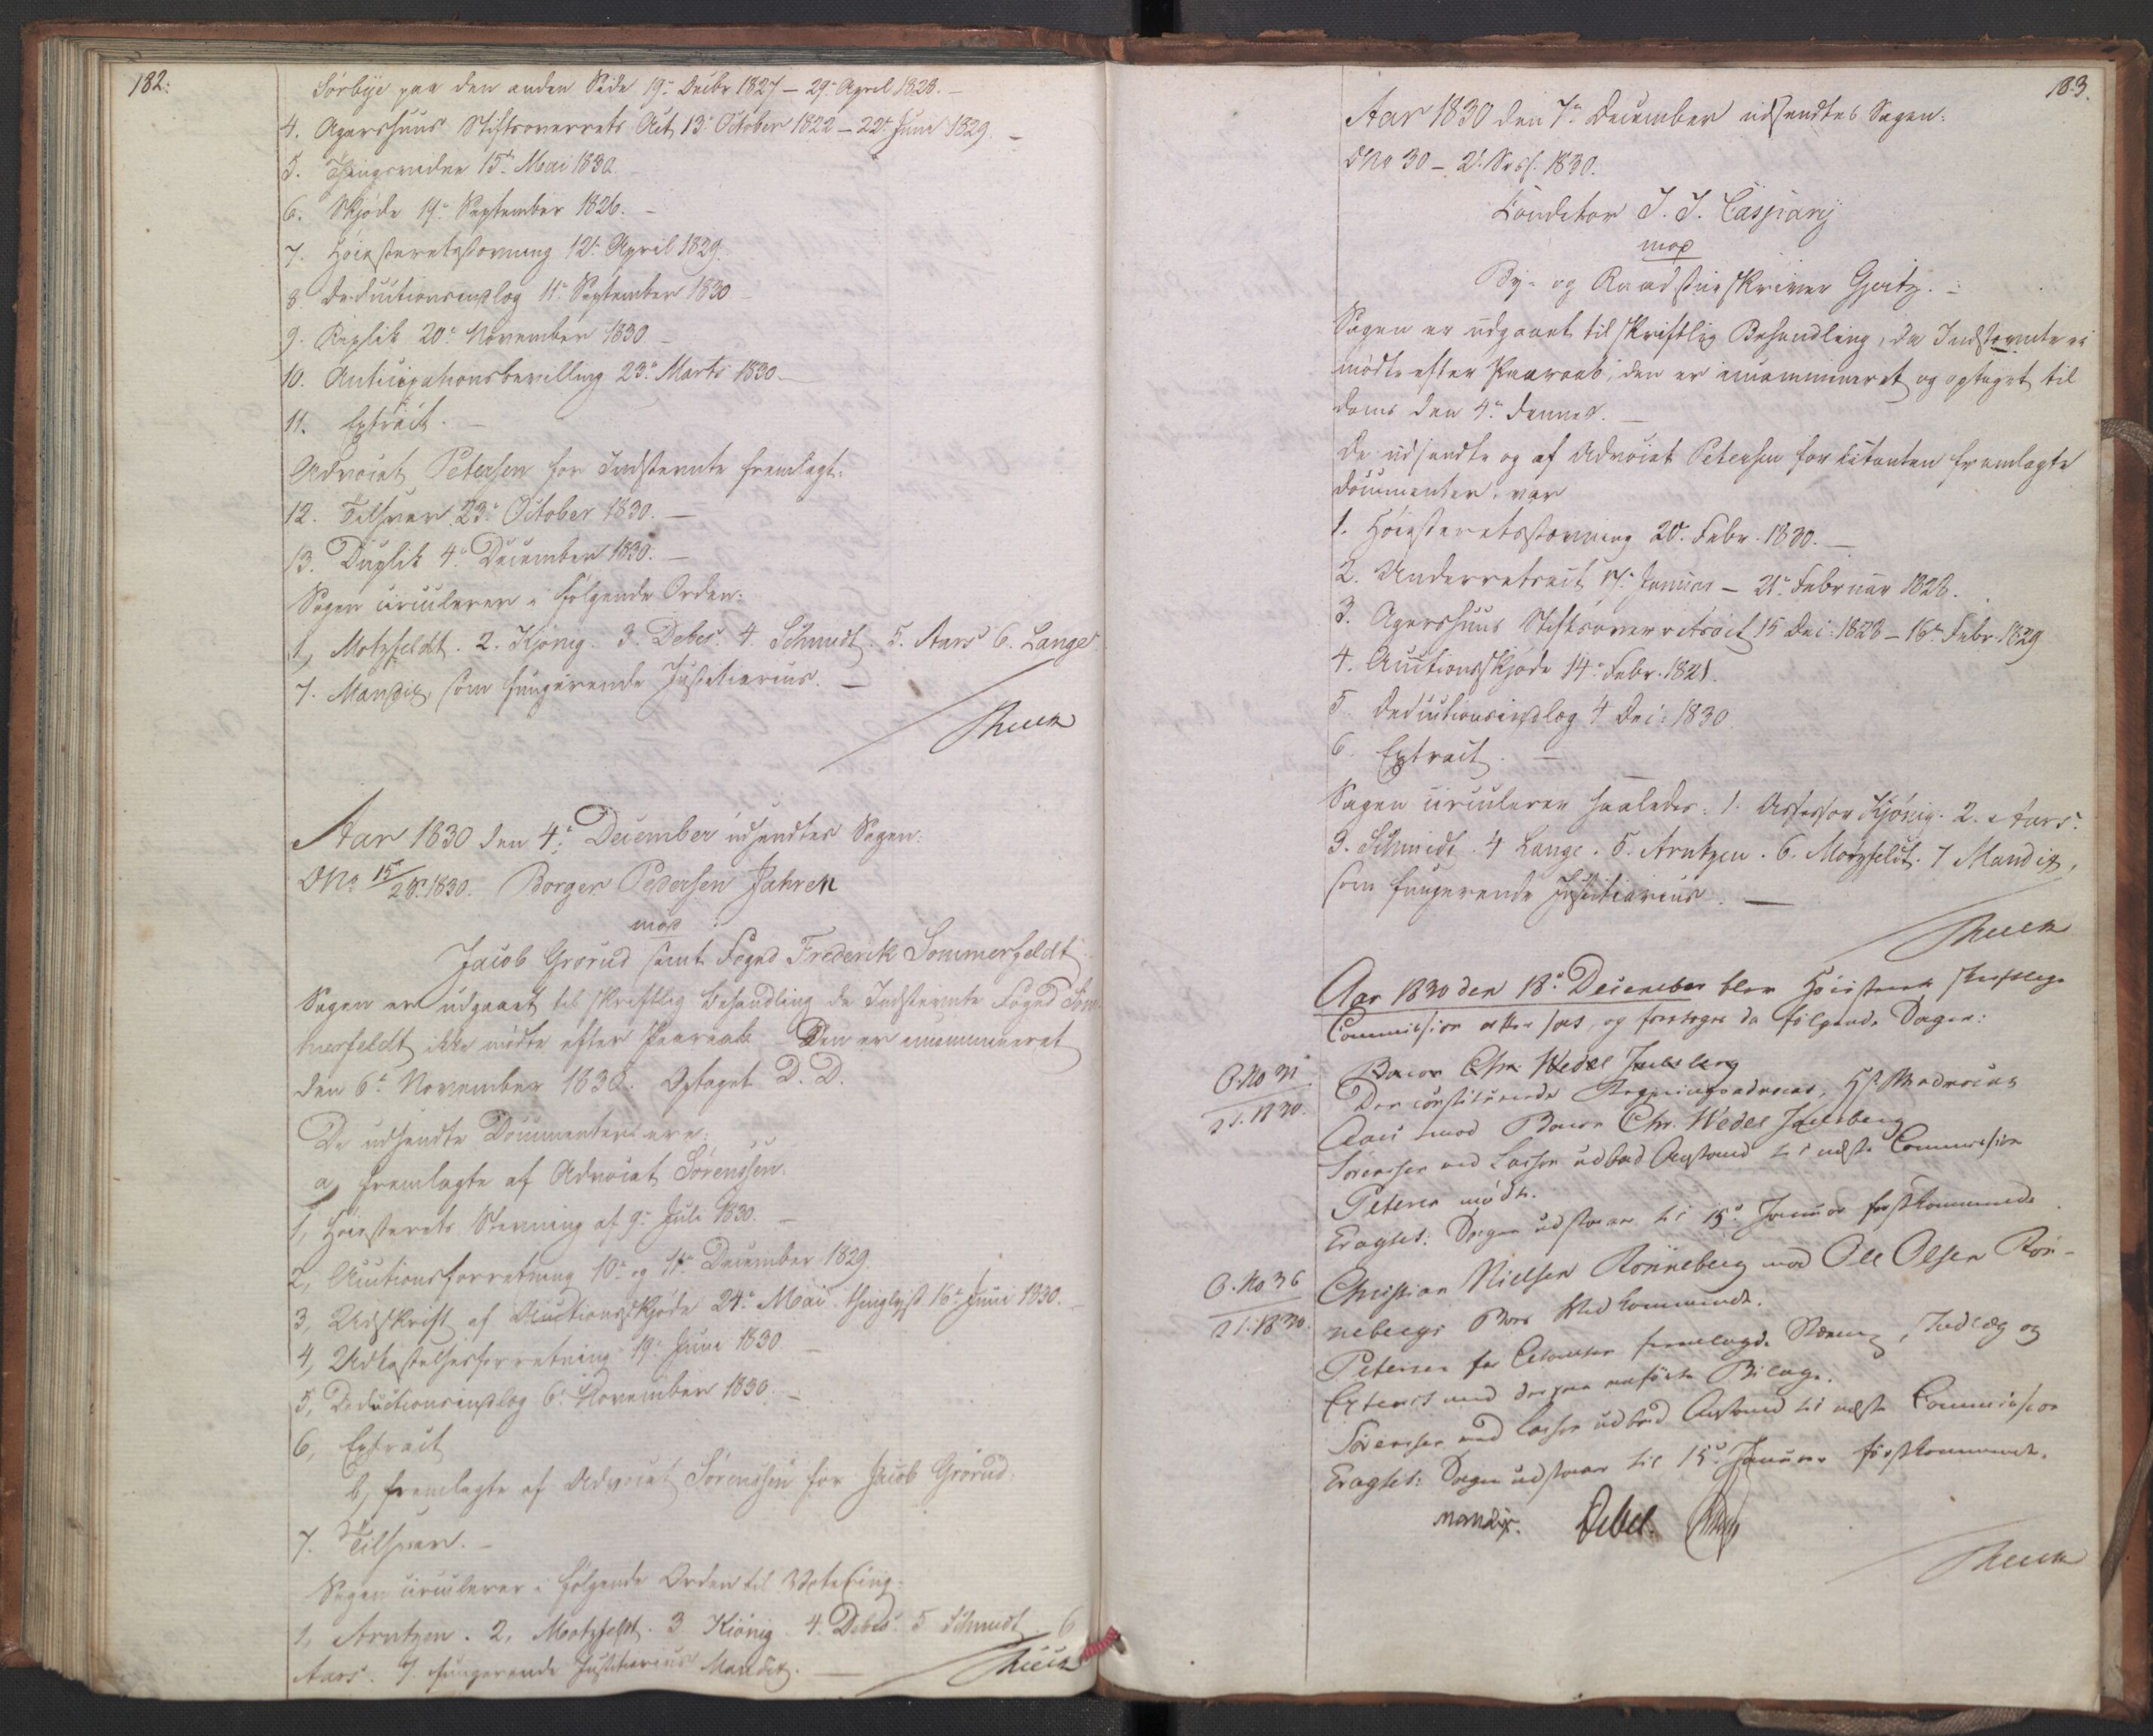 182:
Sörbye paa den anden Side 19de Decbr 1827 – 29de April 1828. –
4. Agershuus Stiftsoverrets Act, 13de October 1822 – 22de Juni 1829. –
5. Thingsvidne 15de Mai 1830. –
6. Skjöde 19de September 1826. –
7. Höiesteretsstevning 12te April 1829.
8. Deductionsindlæg 11te September 1830 –
9. Replik 20de November 1830 –
10. Anticipationsbevilling 23de Marts 1830. –
11. Extract. –
Advocat Petersen for Indstevnte fremlagt:
12. Tilsvar 23de October 1830. –
13. Duplik 4de December 1830. –
Sagen circulerer i følgende Orden:
1, Motzfeldt. 2. Kjønig. 3. Debes. 4. Schmidt. 5. Aars 6. Lange
7. Mandix, som fungerende Justitiarius. –
Aar 1830 den 4de December udsendtes Sagen:
DNo 15/2 S. 1830. Borger Pedersen Jahren
mod
Jacob Grorud samt Foged Frederik Sommerfeldt
Sagen er udgaaet til skriftlig Behandling da Indstevnte Foged Som
merfeldt ikke mödte efter Paaraab. Den er incammineret
den 6te November 1830. Optaget D. D.
De udsendte Documenter ere:
a, fremlagte af Advocat Sörenssen.
1, Höiesterets Stevning af 9de Juli 1830. –
2, Auctionsforretning 10de og 11te December 1829.
3, Udskrift af Auctionsskjöde 24de Mai thinglyst 16de Juni 1830.
4, Udkastelsesforretning 19de Juni 1830 –
5, Deductionsindlæg 6te November 1830. –
6, Extract
b, fremlagte af Advocat Sörenssen for Jacob Grorud.
7. Tilsvar. –
Sagen circulerer i følgende Orden til Votering:
1, Arntzen. 2, Motzfeldt. 3 Kiönig 4. Debes. 5 Schmidt 6
Aars. 7. fungerende Justitiarius Mandix. –
183.
Aar 1830 den 7de December udsendtes Sagen:
DNo 30 – 2d. Sess. 1830.
Conditor J. J. Caspary
mod
By- og Raadstueskriver Gjertz. –
Sagen er udgaaet til skriftlig Behandling, da Indstevnte ei
mödte efter Paaraab; den er incammineret og optaget til
Doms den 4de dennes. –
De udsendte og af Advocat Petersen for Citanten fremlagte
Documenter, var
1. Höiesteretsstevning 20de Febr. 1830. –
2. Underretsact 17de Januar – 21de Februar 1828.
3. Agershuus Stiftsoverretsact 15 Dec: 1828 – 16de Febr. 1829
4. Auctionsskjöde 14de Febr. 1821.
5 Deductionsindlæg 4 Dec: 1830
6. Extract. –
Sagen circulerer saaledes: 1. Assessor Kjönig. 2. Aars.
3. Schmidt. 4 Lange. 5. Arntzen. 6. Motzfeldt. 7 Mandix,
som fungerende Justitiarius. –
Aar 1830 den 18de December blev Höiesterets skriftlige
Commission atter sat, og foretoges da følgende Sager:
D. No 31
2 S. 1830.
Baron Chr. Wedel Jarlsberg
Den constituerede Regjeringsadvocat,
Aars mod Baron Chr. Wedel Jarlsberg
Sörenssen ved Lasson udbad Anstand til næste Commission
Petersen mödte.
Eragtet: Sagen udstaaer til 15de Januar førstkommende.
D. No 36
2 S. 1830.
Christian Nielsen Rönneberg mod Ole Olsen Rön-
nebergs Boes Vedkommende.
Petersen for Citanten fremlagde Stevning, Indlæg og
Extract med derpaa anførte Bilage.
Sörenssen ved Lasson udbad Anstand til næste Commission
Eragtet: Sagen udstaaer til 15de Januar förstkommende.
Mandix. Debes.